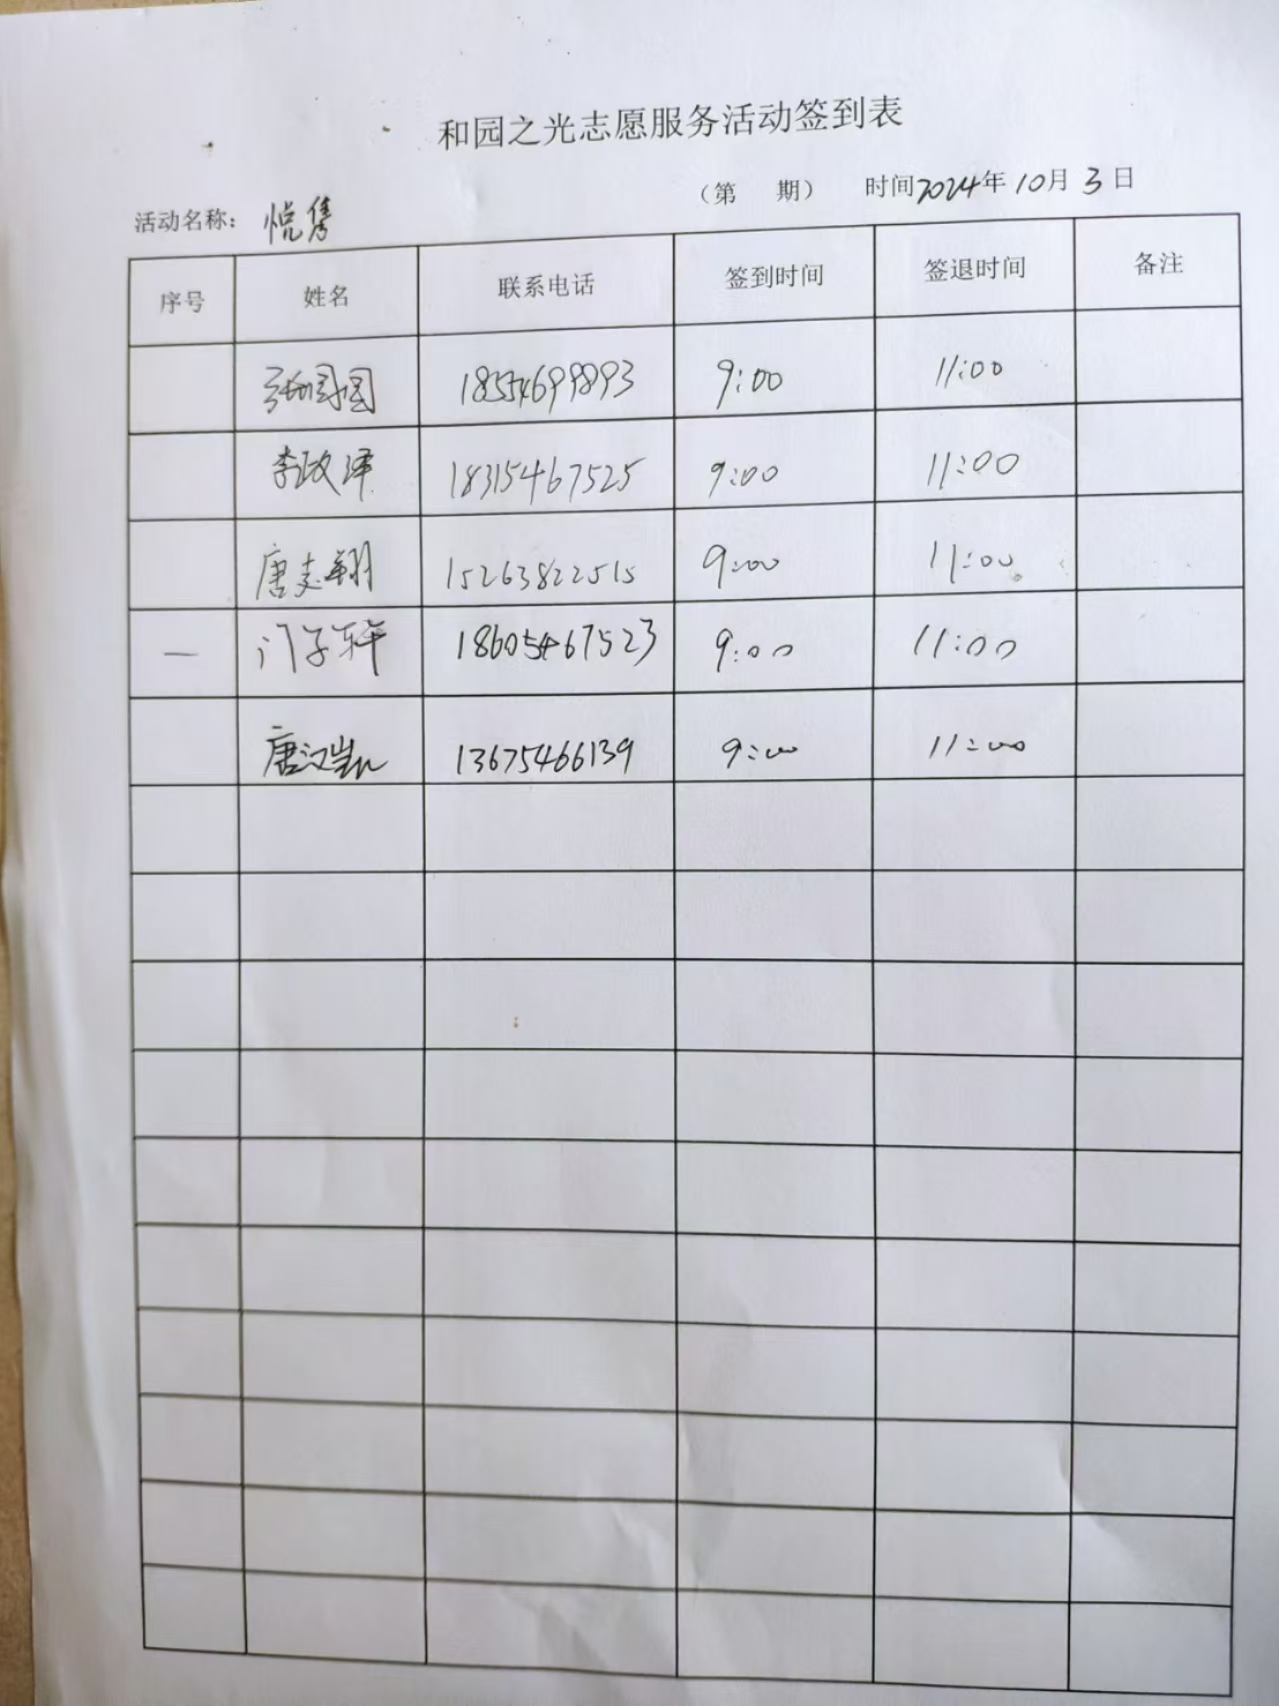 和园之光志愿服务活动签到表
（第 期） 时间2024年10月3日
活动名称： 悦隽
序号 姓名 联系电话 签到时间 签退时间 备注
张园园 18554699893 9:00 11:00
李政泽 18315467525 9:00 11:00
唐志翔 15263822515 9:00 11:00
一 门子轩 18605467523 9:00 11:00
唐汉凯 13675466139 9:00 11:00